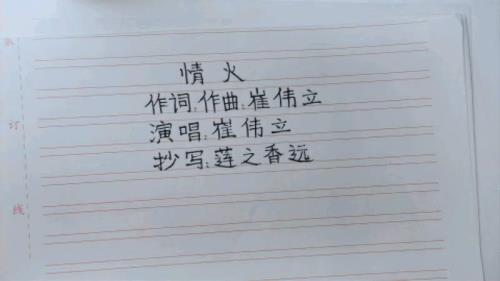 情火
作词:作曲:崔伟立
演唱:崔伟立
抄写:莲之香远
订
线